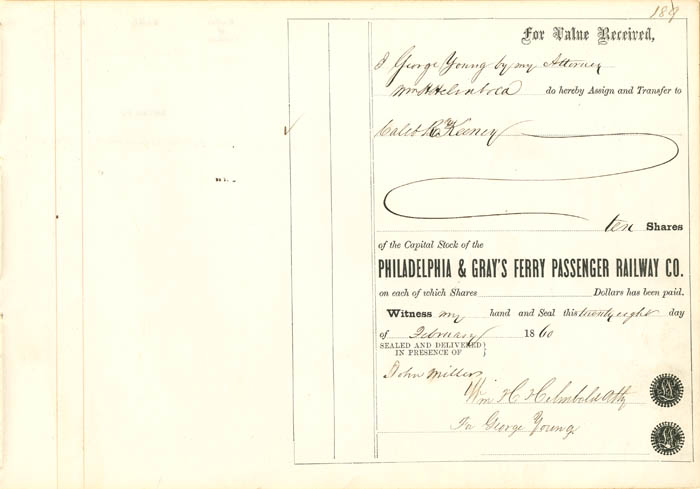 189
For Value Received,
I George Young by my Attorney
Wm H Helmbold do hereby Assign and Transfer to
Caleb R. Keeney
ten Shares
of the Capital Stock of the
PHILADELPHIA & GRAY'S FERRY PASSENGER RAILWAY CO.
on each of which Shares Dollars has been paid.
Witness my hand and Seal this twenty eight day
of February 1860
SEALED AND DELIVERED
IN PRESENCE OF
John Miller
Wm H Helmbold Atty
For George Young